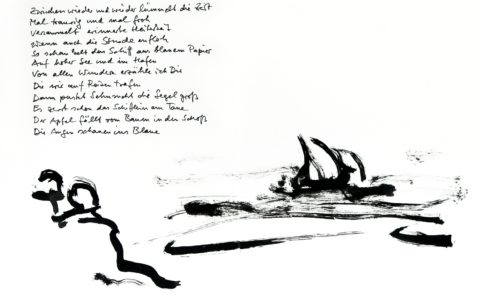 Zwischen wieder und wieder kümmelt die Zeit
Mal traurig und mal froh
Verwummelt erinnerte Heiterkeit
Wenn auch die Stunde entfloh
So schaukelt das Schiff aus blauem Papier
Auf hoher See und im Hafen
Von allen Wundern erzähle ich Dir
Die wir auf Reisen trafen
Dann pustet Sehnsucht die Segel groß
Es zerrt schon das Schifflein am Taue
Der Apfel fällt vom Baum in den Schoß
Die Augen schauen ins Blaue